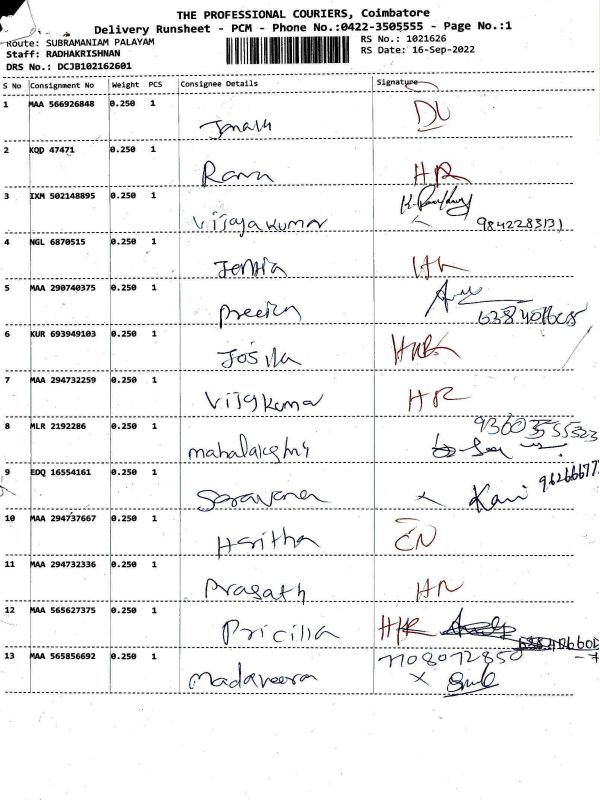 THE PROFESSIONAL COURIERS, Coimbatore
Delivery Runsheet - PCM - Phone No.:0422-3505555 - Page No.:1
Route: SUBRAMANIAM PALAYAM
RS No.: 1021626
Staff: RADHAKRISHNAN
RS Date: 16-Sep-2022
DRS No.: DCJB102162601
S No Consignment No Weight PCS Consignee Details Signature
1 MAA 566926848 0.250 1
DL
2 KQD 47471 0.250 1
HR
3 IXM 502148895 0.250 1
Vijayakumar 9842283131
4 NGL 6870515 0.250 1
5 MAA 290740375 0.250 1
Preetha
6 KUR 693949103 0.250 1
7 MAA 294732259 0.250 1
Vijaykumar HR
8 MLR 2192286 0.250 1
mahalakshmi
9 EDQ 16554161 0.250 1
Saravana x Kavi
10 MAA 294737667 0.250 1
Haritha
11 MAA 294732336 0.250 1
Prasath
12 MAA 565627375 0.250 1
Pricilla
13 MAA 565856692 0.250 1
7708072850
Madaveera x